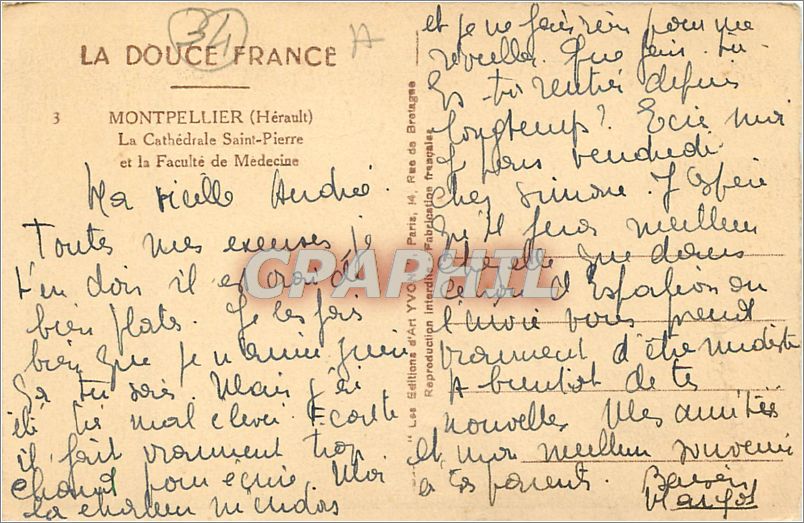 34
A
LA DOUCE FRANCE
3 MONTPELLIER (Hérault)
La Cathédrale Saint-Pierre
et la Faculté de Médecine
Ma vieille Andrée.
Toutes mes excuses je
t'en dois il est vrai de
bien plates. Je les fais
bien que je n'aime guère
ça tu sais. Mais j'ai
été très mal élevée. Ecoute
il fait vraiment trop
chaud pour écrire. Moi
la chaleur
et je ne fais rien pour me
réveiller. Que fais-tu.
Es-tu rentrée depuis
longtemps? Ecris moi
Je pars vendredi
chez Simone. J'espère
qu'il fera meilleur
chez elle que dans
l'envie vous prend
vraiment d'être modiste
A bientôt de tes
nouvelles. Mes amitiés
et mon meilleur souvenir
à tes parents. Baisers
Margot
"Les Editions d'Art YVON" Paris, 14, Rue de Bretagne
Reproduction interdite Fabrication française
CPAPHIL